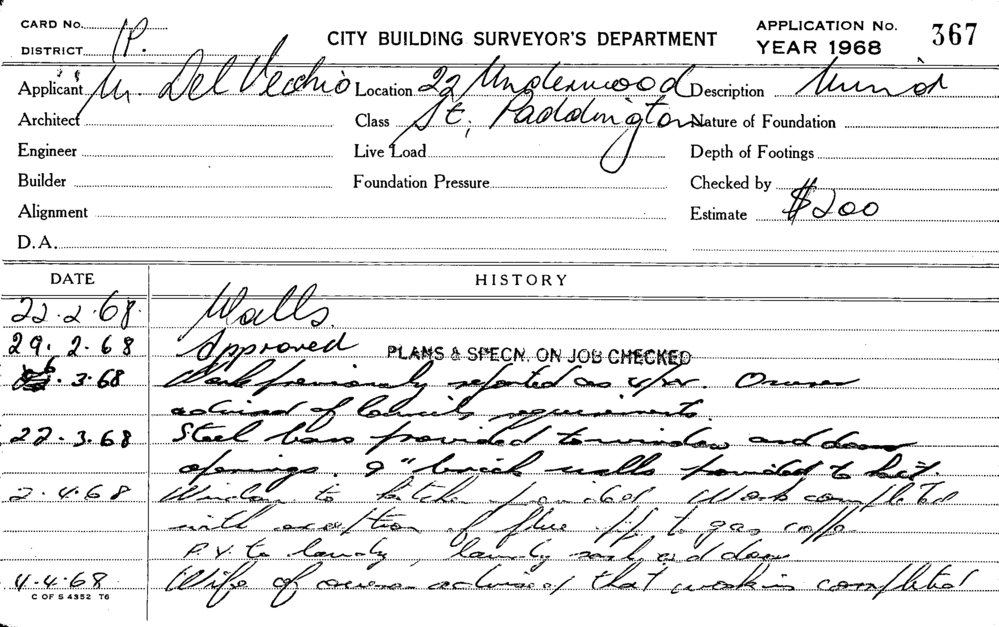 CARD No.
DISTRICT 1P.
CITY BUILDING SURVEYOR'S DEPARTMENT
APPLICATION No. 367
YEAR 1968
Applicant M. Del Vecchio Location 22 Underwood Description Minor
Architect Class St, Paddington Nature of Foundation
Engineer Live Load Depth of Footings
Builder Foundation Pressure Checked by
Alignment Estimate $200
D.A.
DATE HISTORY
22.2.68. Walls.
29.2.68 Approved PLANS & SPECN. ON JOB CHECKED
6.3.68 Work previously reported as Owner
advised of Councils requirements.
22.3.68 Steel bars provided to window and door
openings. 9" brick walls provided to
2.4.68 Window to kitchen provided Work completed
with exception of flue to gas
P.V. to laundy, laundy sash and door
4.4.68 Wife of owner advised that work is completed
C OF S 4352 T6